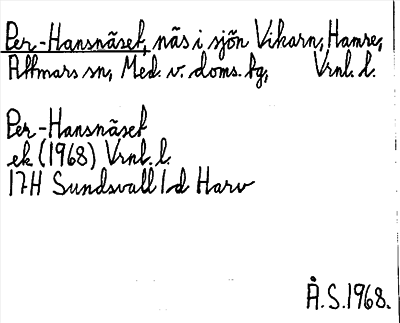 Per-Hansnäset, näs i sjön Vikarn, Hamre,
Attmars sn, Med. v. doms. tg, Vrnl. l.
Per-Hansnäset
ek (1968) Vrnl. l.
17H Sundsvall 1d Harv
Å.S. 1968.